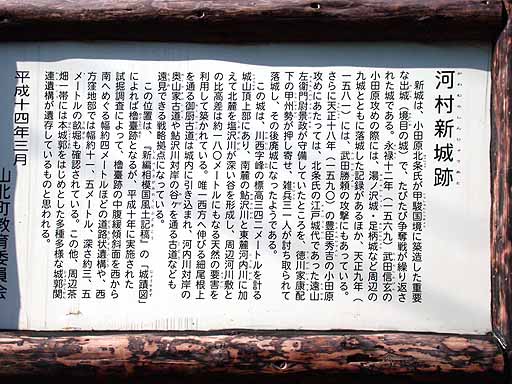 河村新城跡
新城は、小田原北条氏が甲駿国境に築造した重要
な出城（境目の城）で、たびたび争奪戦が繰り返さ
れた城である。永禄十二年（一五六九）武田信玄の
小田原攻めの際には、湯ノ沢城・足柄城など周辺の
九城とともに落城した記録があるほか、天正九年（
一五八一）には、武田勝頼の攻撃にもあっている。
さらに天正十八年（一五九〇）の豊臣秀吉の小田原
攻めにあたっては、北条氏の江戸城代であった遠山
左衛門尉景政が守備していたところを、徳川家康配
下の甲州勢が押し寄せ、雑兵三一人が討ち取られて
落城し、その後廃城になったようである。
この城は、川西字鐘の標高三四二メートルを計る
城山頂上部にあり、南麓の鮎沢川と東麓河内川に加
えて北麓を塩沢川が深い谷を形成し、周辺河川敷と
の比高差は約一八〇メートルにもなる天然の要害を
利用して築かれている。唯一西方へ伸びる細尾根上
を通る御厨古道は城内に引き込まれ、河内川対岸の
奥山家古道や鮎沢川対岸の谷ケを通る古道なども
遠見できる戦略拠点になっている。
この位置は、『新編相模国風土記稿』の「城蹟図」
によれば櫓臺跡となるが、平成十年に実施された
試掘調査によって、櫓臺跡の中腹緩傾斜面を西から
南へめぐる幅約四メートルほどの道路状遺構や、西
方窪地部では幅約十一、五メートル、深さ約三、五
メートルの畝堀も確認されている。この他、周辺茶
畑一帯には本城郭をはじめとした多種多様な城郭関
連遺構が遺存しているものと思われる。
平成十四年三月
山北町教育委員会